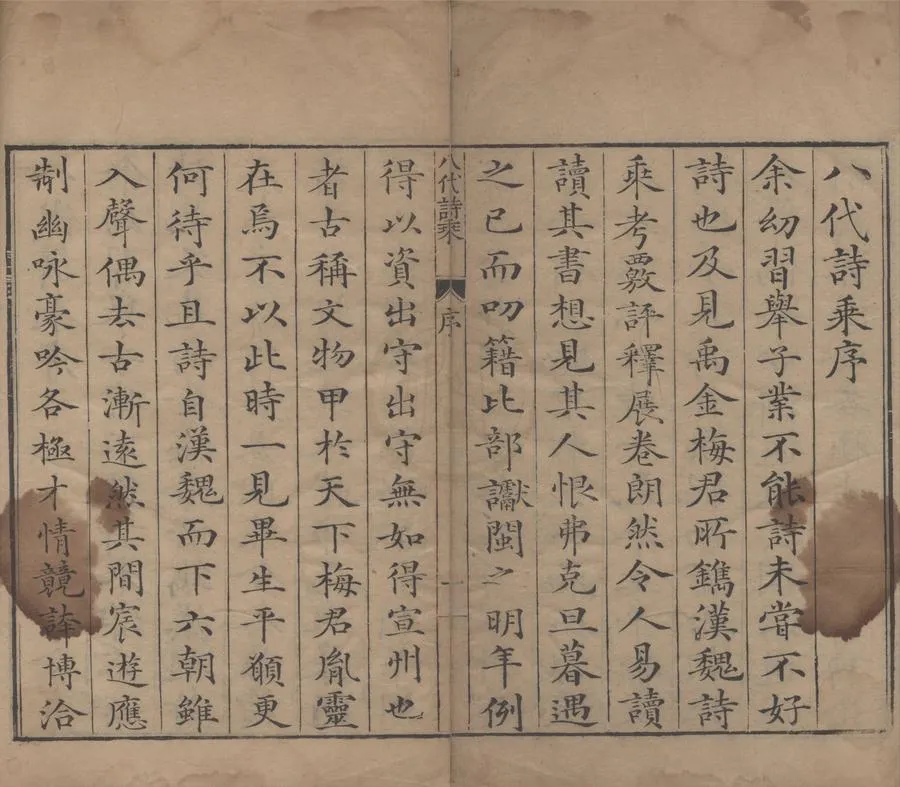 八代詩乘序
余幼習舉子業不能詩未甞不好
詩也及見禹金梅君所鐫漢魏詩
乘考覈評釋展卷朗然令人易讀
讀其書想見其人恨弗克旦暮遇
之已而叨籍比部讞閩之明年例
八代詩乘 序 一
得以資出守出守無如得宣州也
者古稱文物甲於天下梅君胤靈
在焉不以此時一見畢生平願更
何待乎且詩自漢魏而下六朝雖
入聲偶去古漸遠然其間宸遊應
制幽咏豪吟各極才情競博洽